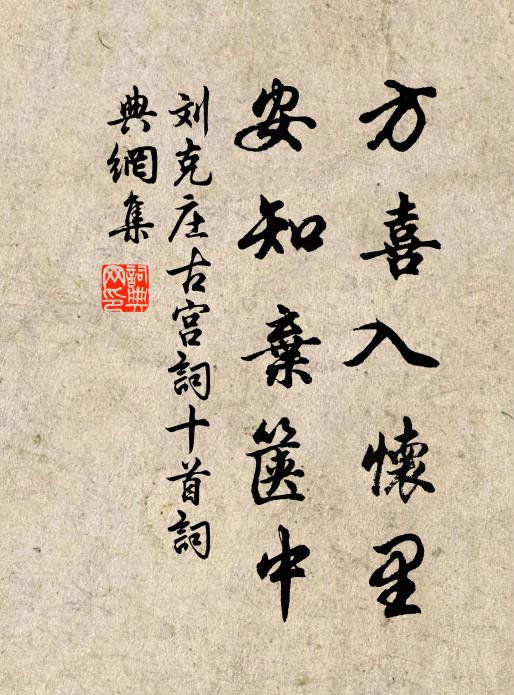 方喜入懷里
安知棄箧中
刘克庄古宫詞十首詞
典網集
詞典网印